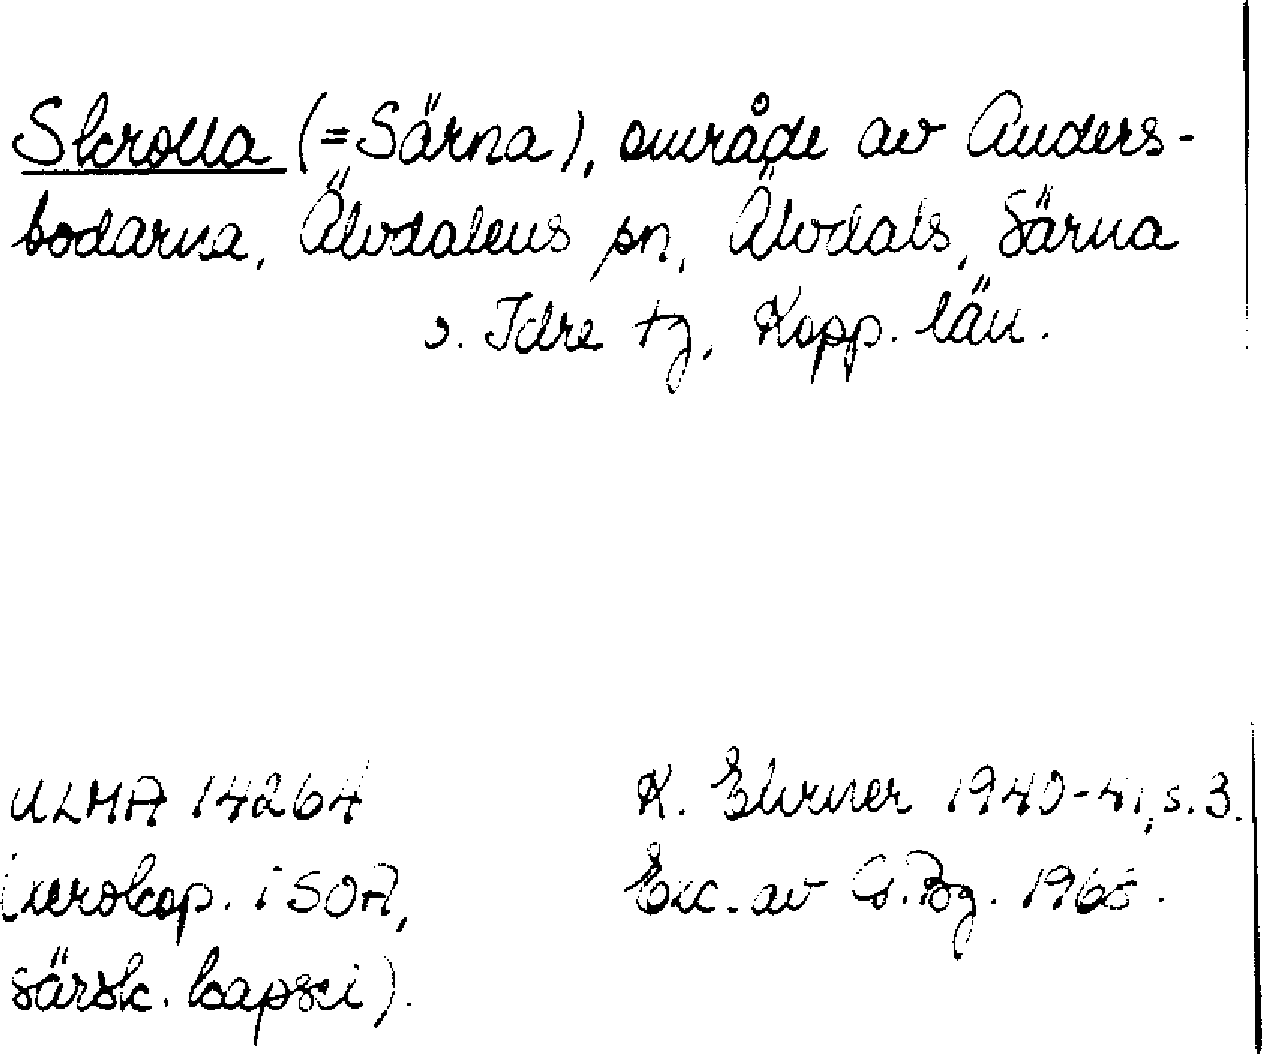 Skrolla (=Särna), område av Anders-
bodarna, Älvdalens sn, Älvdals, Särna
o. Idre tg, Kopp. län.
ULMA 14264
(xerokop. i SOA,
särsk. kapsel).
K. 1940-41, s. 3.
Exc. av G. Bg. 1965.